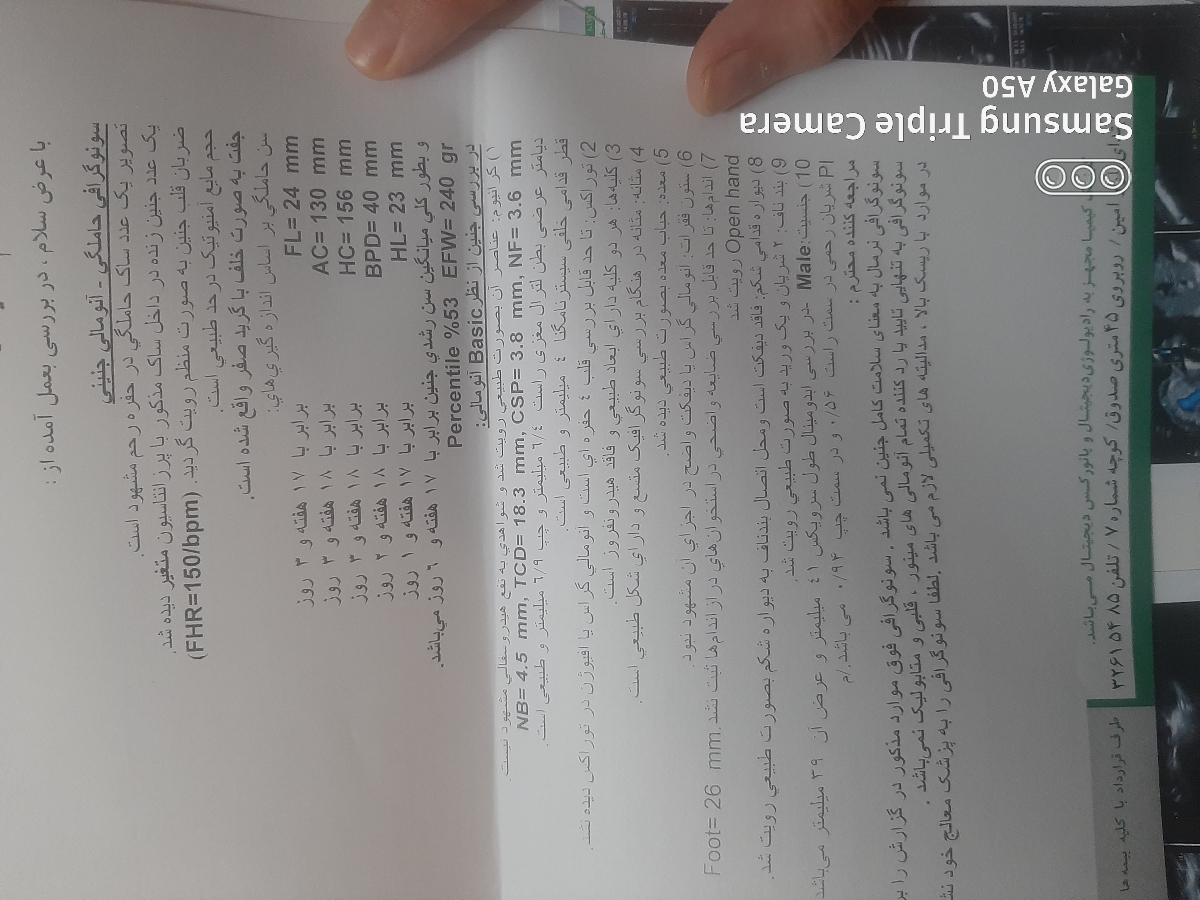 با عرض سلام ، در بررسی بعمل آمده از :
سونوگرافی حاملگی - آنومالی جنینی
تصویر یک عدد ساک حاملگي در حفره رحم مشهود است.
یک عدد جنین زنده در داخل ساک مذکور با پرزانتاسیون متغیر دیده شد.
ضربان قلب جنین به صورت منظم رویت گردید. (FHR=150/bpm)
حجم مایع آمنیوتیک در حد طبیعي است.
جفت به صورت خلف با گرید صفر و واقع شده است.
سن حاملگي بر اساس اندازه گیري هاي:
FL= 24 mm برابر با ۱۷ هفته و ۳ روز
AC= 130 mm برابر با ۱۸ هفته و ۳ روز
HC= 156 mm برابر با ۱۸ هفته و ۳ روز
BPD= 40 mm برابر با ۱۸ هفته و ۲ روز
HL= 23 mm برابر با ۱۷ هفته و ۱ روز
و بطور کلي میانگین سن رشدي جنین برابر با ۱۷ هفته و ۶ روز مي‌باشد.
Percentile %53 EFW= 240 gr
در بررسي جنین از نظر Basic آنومالي:
1) کرانیوم: عناصر آن بصورت طبیعي رویت شد و شواهدي به نفع هیدروسفالي مشهود نیست
NB= 4.5 mm, TCD= 18.3 mm, CSP= 3.8 mm, NF= 3.6 mm
دیامتر عرضی بطن لترال مغزی راست ۶/۴ میلیمتر و چپ ۶/۹ میلیمتر و طبیعی است.
قطر قدامی خلفی سیسترنامگنا ٤ میلیمتر و طبیعی است.
2) توراکس: تا حد قابل بررسي قلب ٤ حفره اي است و آنومالي گراس یا افیوژن در توراکس دیده نشد.
3) کلیه‌ها: هر دو کلیه داراي ابعاد طبیعي و فاقد هیدرونفروز است.
4) مثانه: مثانه در هنگام بررسي سونوگرافیک متسع و داراي شکل طبیعي است.
5) معده: حباب معده بصورت طبیعي دیده شد.
6) ستون فقرات: آنومالي گراس یا دیفکت واضح در اجزاي آن مشهود نبود.
7) اندام‌ها: تا حد قابل بررسي ضایعه واضحي در استخوان هاي دراز اندام‌ها ثبت نشد. Foot= 26 mm
Open hand رویت شد
8) دیواره قدامي شکم: فاقد دیفکت است و محل اتصال بندناف به دیواره شکم بصورت طبیعي رویت شد.
9) بند ناف: ۲ شریان و یک ورید به صورت طبیعي رویت شد.
10) جنسیت: Male -در بررسی ابدومینال طول سرویکس ٤١ میلیمتر و عرض آن ۳۹ میلیمتر می‌باشد
PI شریان رحمی در سمت راست ۰/۵۶ و در سمت چپ ۰/۹۴ می باشد./م
مراجعه کننده محترم :
سونوگرافی نرمال به معنای سلامت کامل جنین نمی باشد . سونوگرافی فوق موارد مذکور در گزارش را بر
سونوگرافی به تنهایی تایید یا رد کننده تمام آنومالی های مینور ، قلبی و متابولیک نمی‌باشد .
در موارد با ریسک بالا ، مدالیته های تکمیلی لازم می باشد .لطفا سونوگرافی را به پزشک معالج خود نش
مجهز به رادیولوژی دیجیتال و پانورکس دیجیتال مـی‌باشد.
امین / روبروی ۴۵ متری صدوق/ کوچه شماره ۷ / تلفن ۳۲۶۱۵۴۸۵
طرف قرارداد با کلیه بیمه ها
Samsung Triple Camera
Galaxy A50